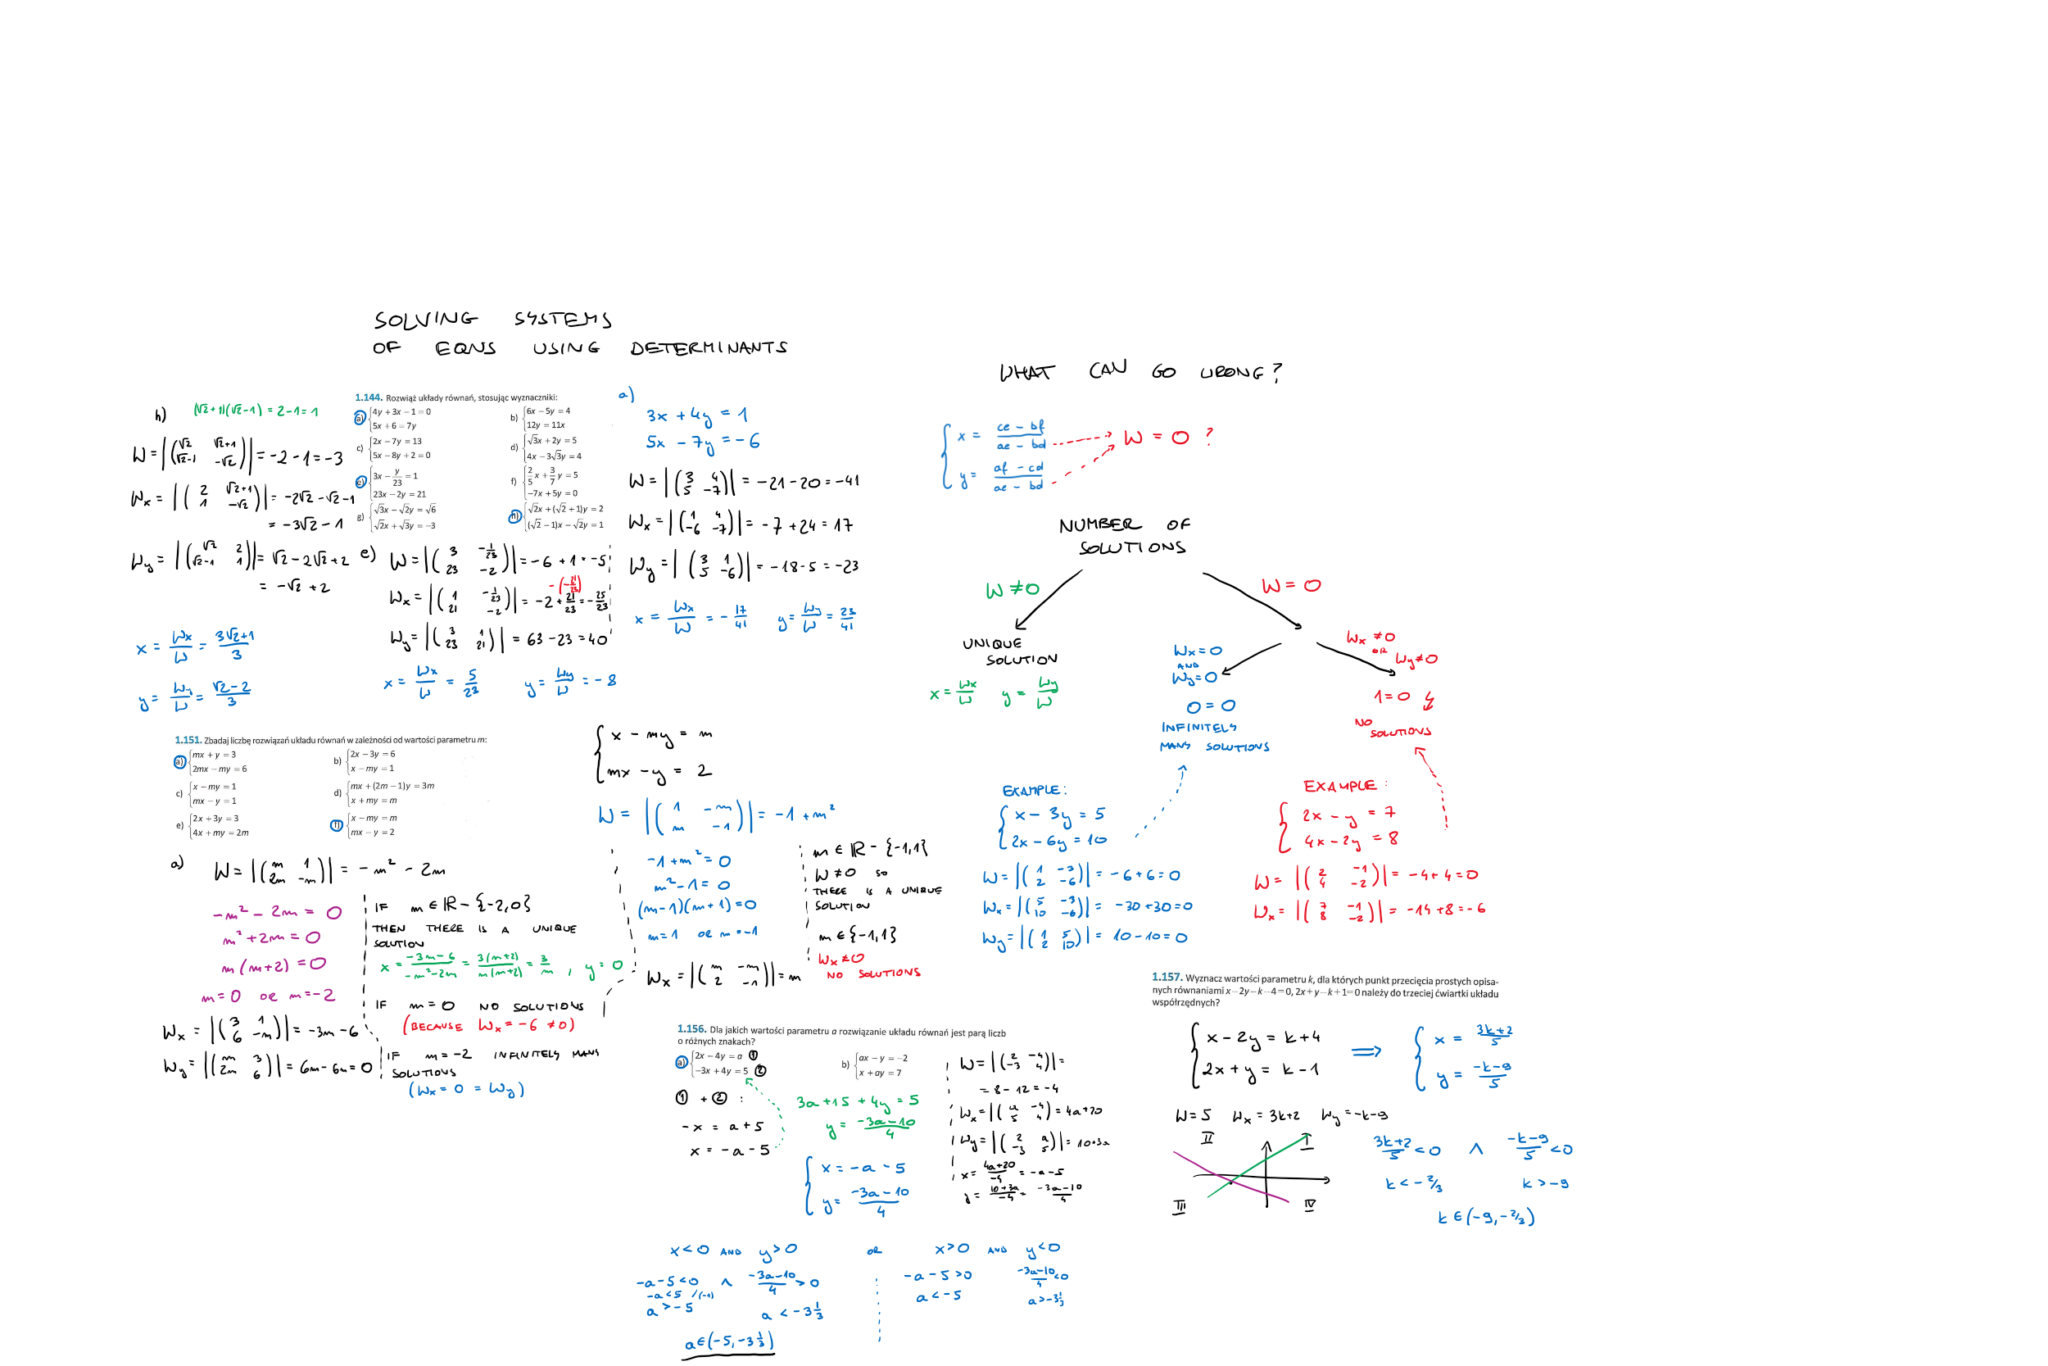 SOLVING SYSTEMS
OF EQNS USING DETERMINANTS
h)
(√2+1)(√2-1) = 2-1 = 1
W = |(√2 √2+1
√2-1 -√2)| = -2-1 = -3
Wx = |(2 √2+1
1 -√2)| = -2√2-√2-1
= -3√2-1
Wy = |(√2 2
√2-1 1)| = √2-2√2+2
= -√2+2
x = Wx/W = (3√2+1)/3
y = Wy/W = (√2-2)/3
1.144. Rozwiąż układy równań, stosując wyznaczniki:
a) {4y + 3x - 1 = 0
5x + 6 = 7y
b) {6x - 5y = 4
12y = 11x
c) {2x - 7y = 13
5x - 8y + 2 = 0
d) {√3x + 2y = 5
4x - 3√3y = 4
e) {3x - y/23 = 1
23x - 2y = 21
f) {2/5 x + 3/7 y = 5
-7x + 5y = 0
g) {√3x - √2y = √6
√2x + √3y = -3
h) {√2x + (√2 + 1)y = 2
(√2 - 1)x - √2y = 1
e) W = |(3 -1/23
23 -2)| = -6 + 1 = -5
Wx = |(1 -1/23
21 -2)| = -2 + 21/23 = -25/23
-(-21/23)
Wy = |(3 1
23 21)| = 63 - 23 = 40
x = Wx/W = 5/23 y = Wy/W = -8
a)
3x + 4y = 1
5x - 7y = -6
W = |(3 4
5 -7)| = -21-20 = -41
Wx = |(1 4
-6 -7)| = -7 + 24 = 17
Wy = |(3 1
5 -6)| = -18-5 = -23
x = Wx/W = -17/41 y = Wy/W = 23/41
WHAT CAN GO WRONG?
{x = (ce - bf)/(ae - bd)
y = (af - cd)/(ae - bd)
W = 0 ?
NUMBER OF
SOLUTIONS
W ≠ 0
W = 0
UNIQUE
SOLUTION
x = Wx/W y = Wy/W
Wx = 0
AND
Wy = 0
0 = 0
INFINITELY
MANY SOLUTIONS
Wx ≠ 0
OR
Wy ≠ 0
1 = 0 ↯
NO
SOLUTIONS
EXAMPLE:
{x - 3y = 5
2x - 6y = 10
W = |(1 -3
2 -6)| = -6+6 = 0
Wx = |(5 -3
10 -6)| = -30+30 = 0
Wy = |(1 5
2 10)| = 10-10 = 0
EXAMPLE:
{2x - y = 7
4x - 2y = 8
W = |(2 -1
4 -2)| = -4+4 = 0
Wx = |(7 -1
8 -2)| = -14+8 = -6
1.151. Zbadaj liczbę rozwiązań układu równań w zależności od wartości parametru m:
a) {mx + y = 3
2mx - my = 6
b) {2x - 3y = 6
x - my = 1
c) {x - my = 1
mx - y = 1
d) {mx + (2m - 1)y = 3m
x + my = m
e) {2x + 3y = 3
4x + my = 2m
f) {x - my = m
mx - y = 2
a) W = |(m 1
2m -m)| = -m² - 2m
-m² - 2m = 0
m² + 2m = 0
m(m+2) = 0
m = 0 OR m = -2
Wx = |(3 1
6 -m)| = -3m - 6
Wy = |(m 3
2m 6)| = 6m - 6m = 0
IF m ∈ R - {-2,0}
THEN THERE IS A UNIQUE
SOLUTION
x = (-3m-6)/(-m²-2m) = 3(m+2)/m(m+2) = 3/m , y = 0
IF m = 0 NO SOLUTIONS
(BECAUSE Wx = -6 ≠ 0)
IF m = -2 INFINITELY MANY
SOLUTIONS
(Wx = 0 = Wy)
{x - my = m
mx - y = 2
W = |(1 -m
m -1)| = -1 + m²
-1 + m² = 0
m² - 1 = 0
(m-1)(m+1) = 0
m = 1 OR m = -1
Wx = |(m -m
2 -1)| = m
m ∈ R - {-1,1}
W ≠ 0 SO
THERE IS A UNIQUE
SOLUTION
m ∈ {-1,1}
Wx ≠ 0
NO SOLUTIONS
1.156. Dla jakich wartości parametru a rozwiązanie układu równań jest parą liczb
o różnych znakach?
a) {2x - 4y = a ①
-3x + 4y = 5 ②
b) {ax - y = -2
x + ay = 7
① + ② :
-x = a + 5
x = -a - 5
3a + 15 + 4y = 5
y = (-3a-10)/4
{x = -a - 5
y = (-3a-10)/4
W = |(2 -4
-3 4)| =
= 8 - 12 = -4
Wx = |(a -4
5 4)| = 4a+20
Wy = |(2 a
-3 5)| = 10+3a
x = (4a+20)/-4 = -a-5
y = (10+3a)/-4 = (-3a-10)/4
x < 0 AND y > 0 OR x > 0 AND y < 0
-a-5 < 0 ∧ (-3a-10)/4 > 0
-a < 5 /(-1)
a > -5 a < -3 1/3
a ∈ (-5, -3 1/3)
-a-5 > 0 (-3a-10)/4 < 0
a < -5 a > -3 1/3
1.157. Wyznacz wartości parametru k, dla których punkt przecięcia prostych opisa-
nych równaniami x - 2y - k - 4 = 0, 2x + y - k + 1 = 0 należy do trzeciej ćwiartki układu
współrzędnych?
{x - 2y = k + 4
2x + y = k - 1
⟹ {x = (3k+2)/5
y = (-k-9)/5
W = 5 Wx = 3k+2 Wy = -k-9
II I
III IV
(3k+2)/5 < 0 ∧ (-k-9)/5 < 0
k < -2/3 k > -9
k ∈ (-9, -2/3)